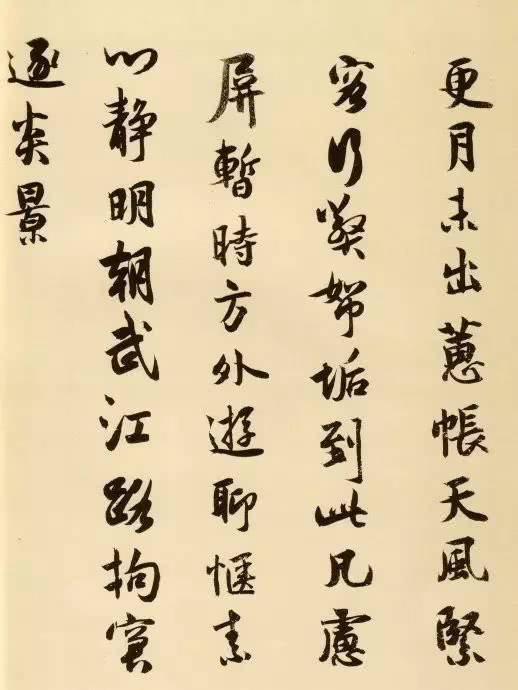 更月未出蕙帳天風緊
客行垢到此凡慮
屏暫時方外遊聊愜素
心靜明朝武江路拘窘
逐炎景